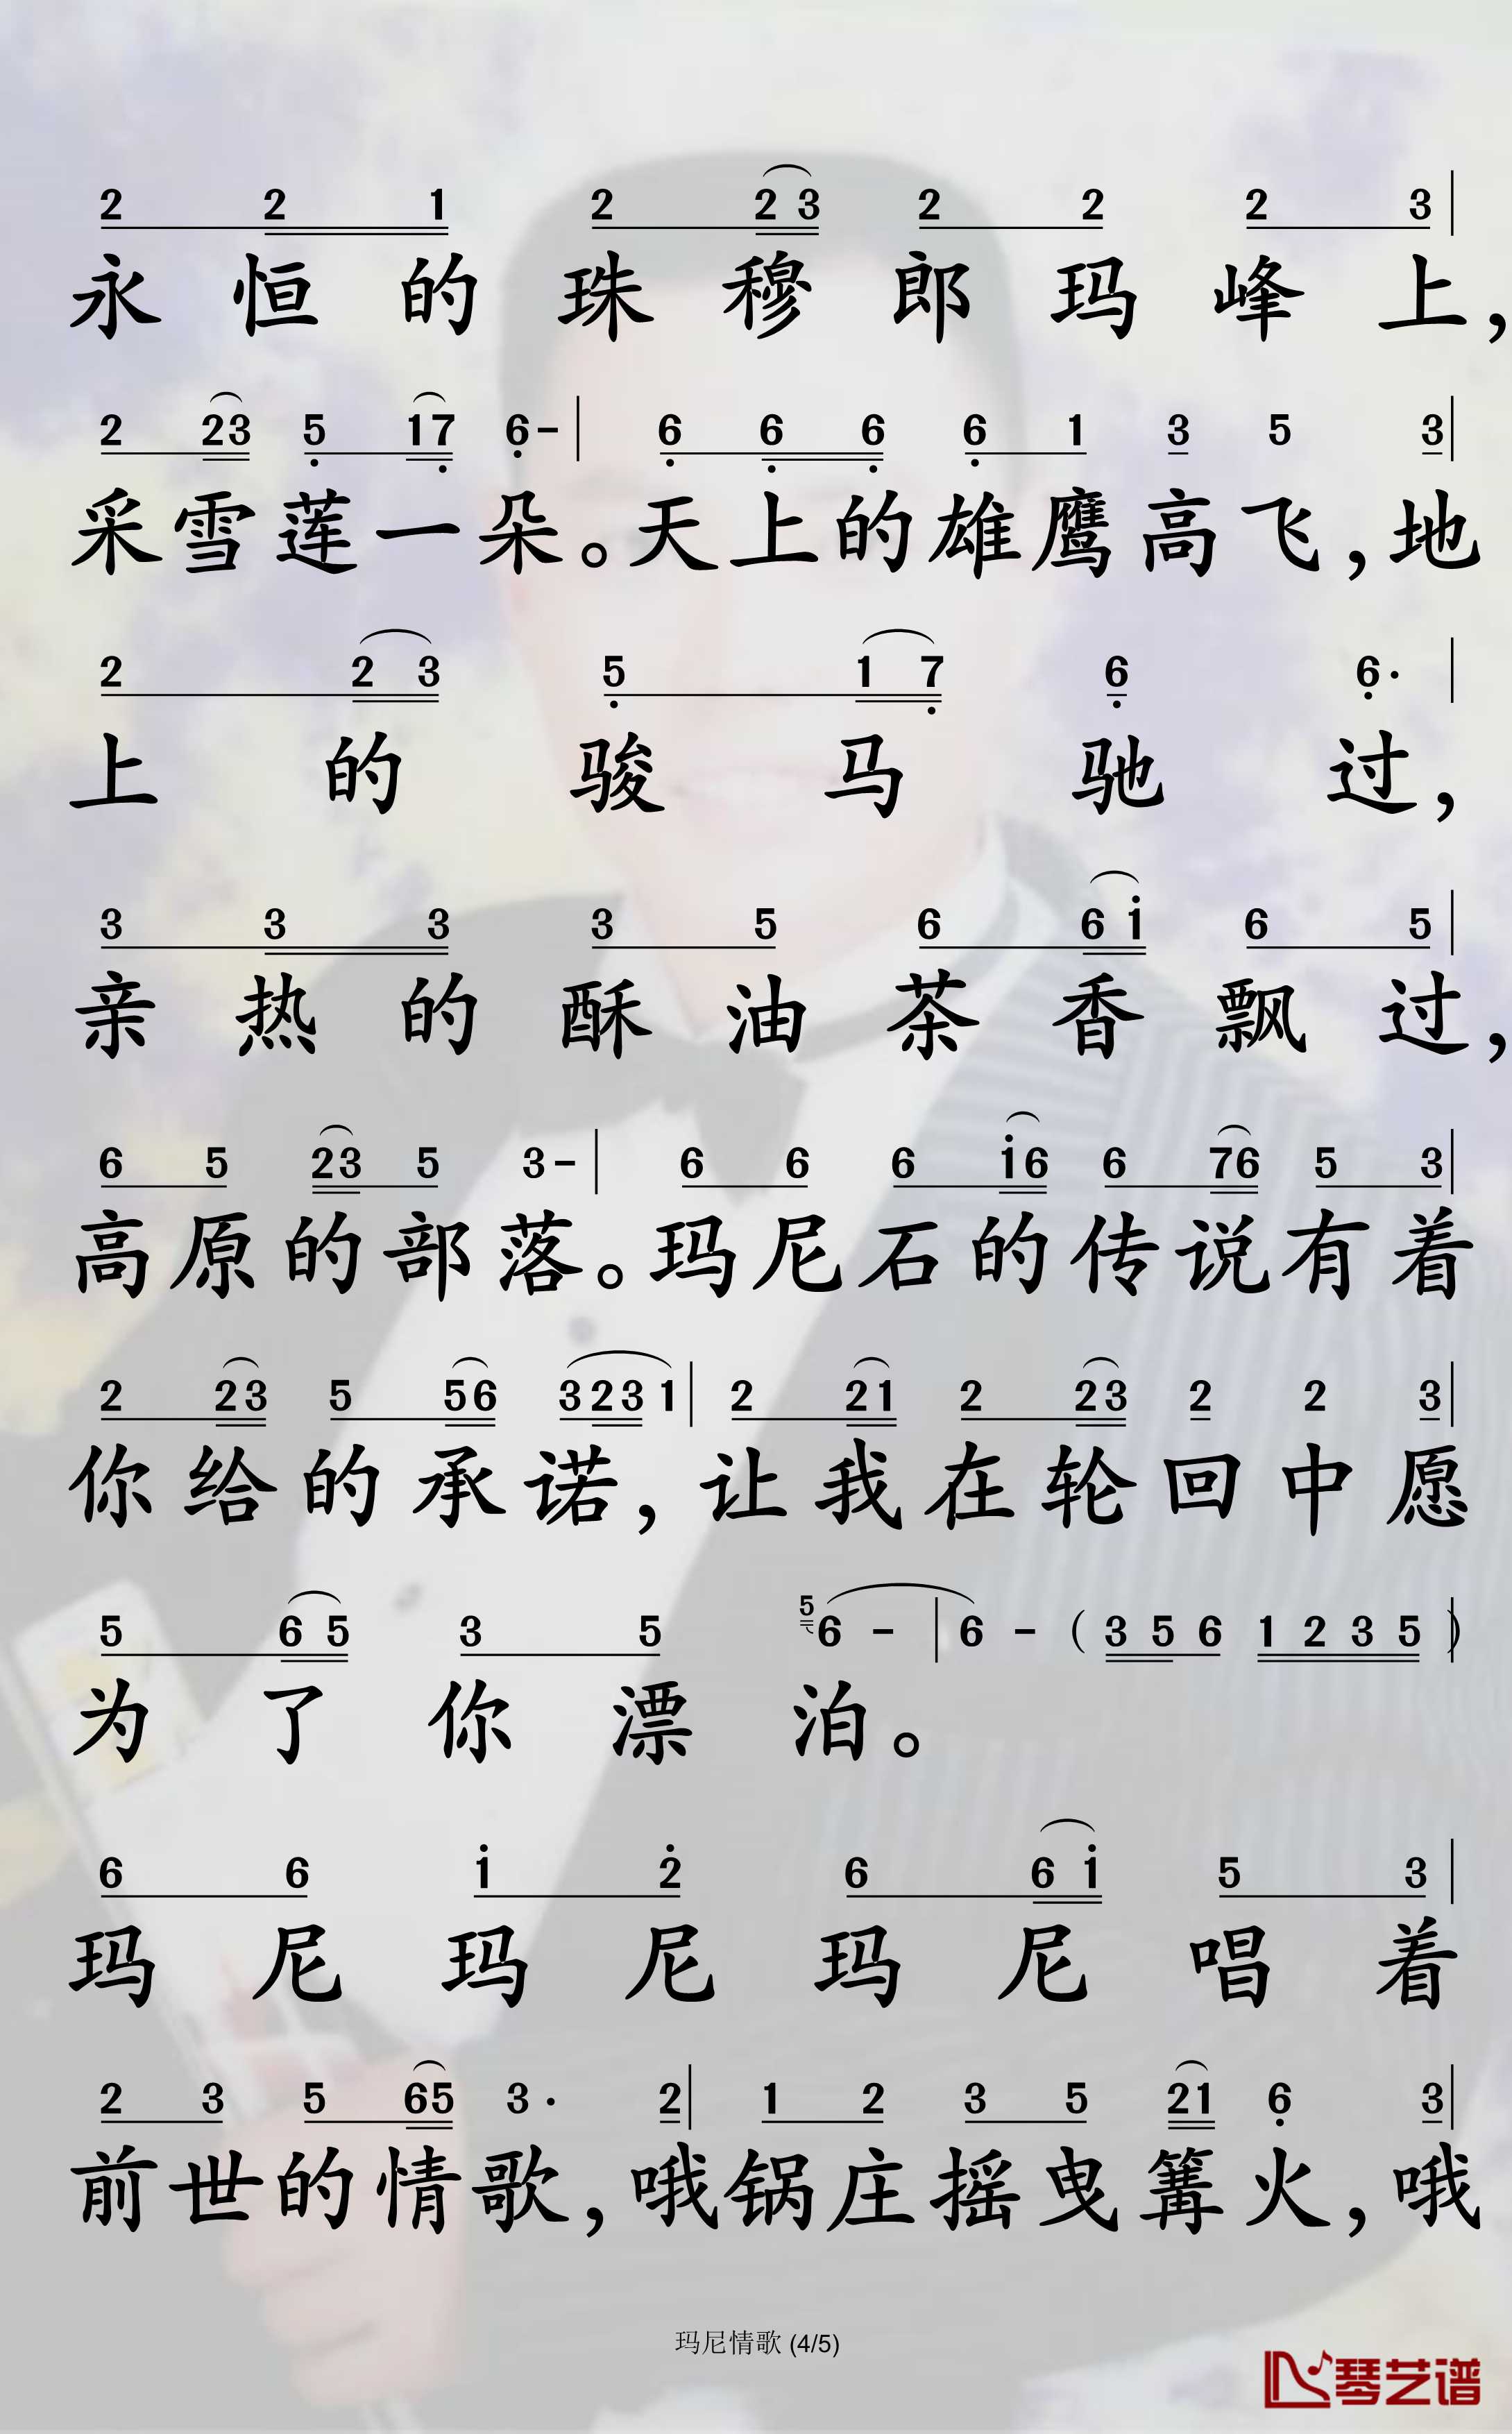 2 2 1 2 2 3 2 2 2 3
永恒的珠穆郎玛峰上，
2 23 5 17 6- 6 6 6 6 1 3 5 3
采雪莲一朵。天上的雄鹰高飞，地
2 2 3 5 1 7 6 6·
上的骏马驰过，
3 3 3 3 5 6 6 i 6 5
亲热的酥油茶香飘过，
6 5 23 5 3- 6 6 6 i6 6 76 5 3
高原的部落。玛尼石的传说有着
2 23 5 56 323 1 2 21 2 23 2 2 3
你给的承诺，让我在轮回中愿
5 6 5 3 5 5 6 - 6 - (3 5 6 1 2 3 5)
为了你漂泊。
6 6 i 2 6 6 i 5 3
玛尼玛尼玛尼唱着
2 3 5 65 3· 2 1 2 3 5 21 6 3
前世的情歌，哦锅庄摇曳篝火，哦
玛尼情歌 (4/5)
琴艺谱